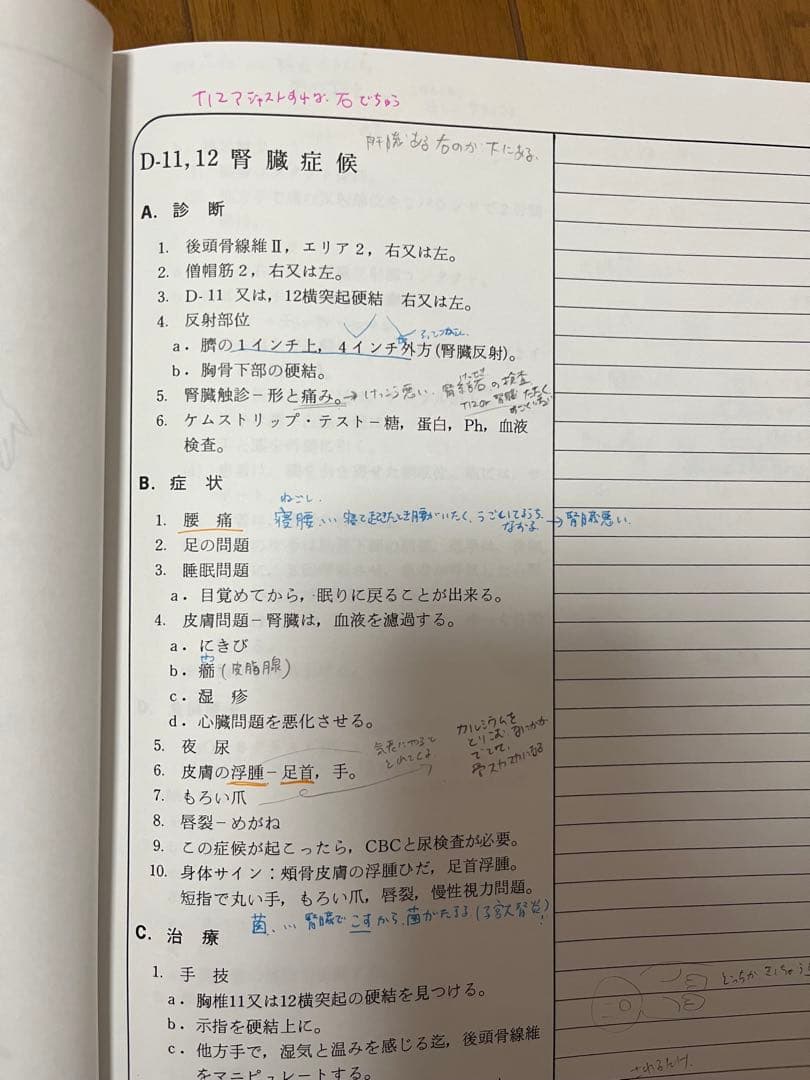 T12アジャストすれば、石でちゅう
肝臓ある右のが下にある。
D-11, 12 腎臓症候
A. 診断
1. 後頭骨線維Ⅱ，エリア2，右又は左。
2. 僧帽筋2，右又は左。
3. D-11 又は，12横突起硬結 右又は左。
4. 反射部位
a．臍の1インチ上，4インチ外方(腎臓反射)。
b．胸骨下部の硬結。
5. 腎臓触診－形と痛み。→けっこう悪い．腎結石の検査
けっせき
T12or腎臓たたく
6. ケムストリップ・テスト－糖，蛋白，Ph，血液
検査。
B. 症状
ねごし．
1. 腰痛 寝腰… 寝て起きたとき腰がいたく、うごいておちち
なおる →腎臓悪い．
2. 足の問題
3. 睡眠問題
a．目覚めてから，眠りに戻ることが出来る。
4. 皮膚問題－腎臓は，血液を濾過する。
a．にきび
b．癤(皮脂腺)
c．湿疹
d．心臓問題を悪化させる。
5. 夜尿
カルシウムを
とりこむ
でてて、
骨スカスカになる
6. 皮膚の浮腫－足首，手。
7. もろい爪
8. 唇裂－めがね
9. この症候が起こったら，CBCと尿検査が必要。
10. 身体サイン：頰骨皮膚の浮腫ひだ，足首浮腫。
短指で丸い手，もろい爪，唇裂，慢性視力問題。
菌… 腎臓でこすから、菌がたまる
C. 治療
1. 手技
a．胸椎11又は12横突起の硬結を見つける。
b．示指を硬結上に。
どっちか
c．他方手で，湿気と温みを感じる迄，後頭骨線維
をマニピュレートする。